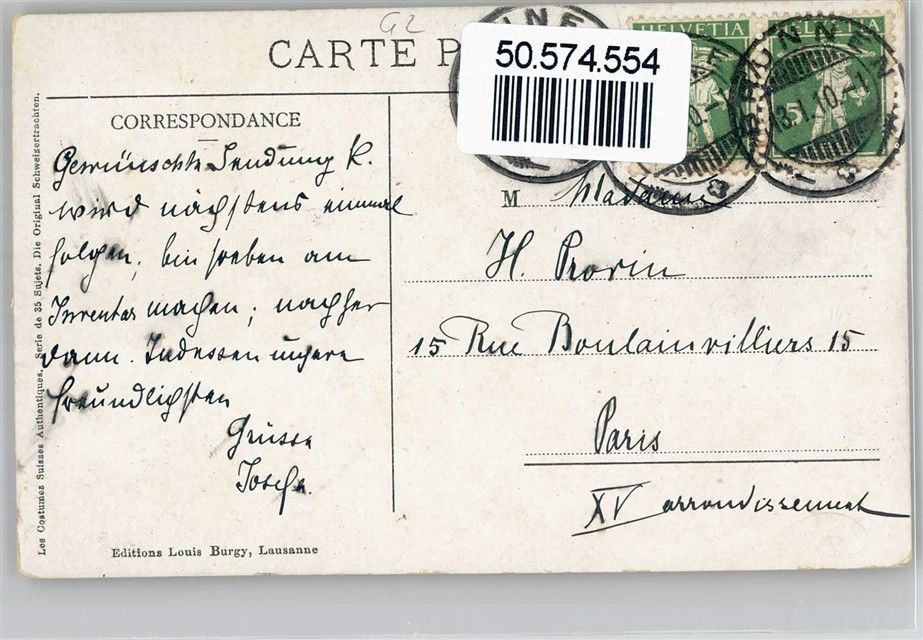 G2
CARTE P
50.574.554
HELVETIA
HELVETIA
BRUNNEN
13.1.10.-1
5
CORRESPONDANCE
Gewünschte Sendung K.
wird nächstens einmal
folgen, bin soeben am
Inventar machen; nachher
dann. Indessen unsere
freundlichsten
Grüsse
M Madame
H. Prorin
15 Rue Boulainvilliers 15
Paris
XV arrondissement
Les Costumes Suisses Authentiques. Serie de 35 Sujets. Die Original Schweizertrachten.
Editions Louis Burgy, Lausanne